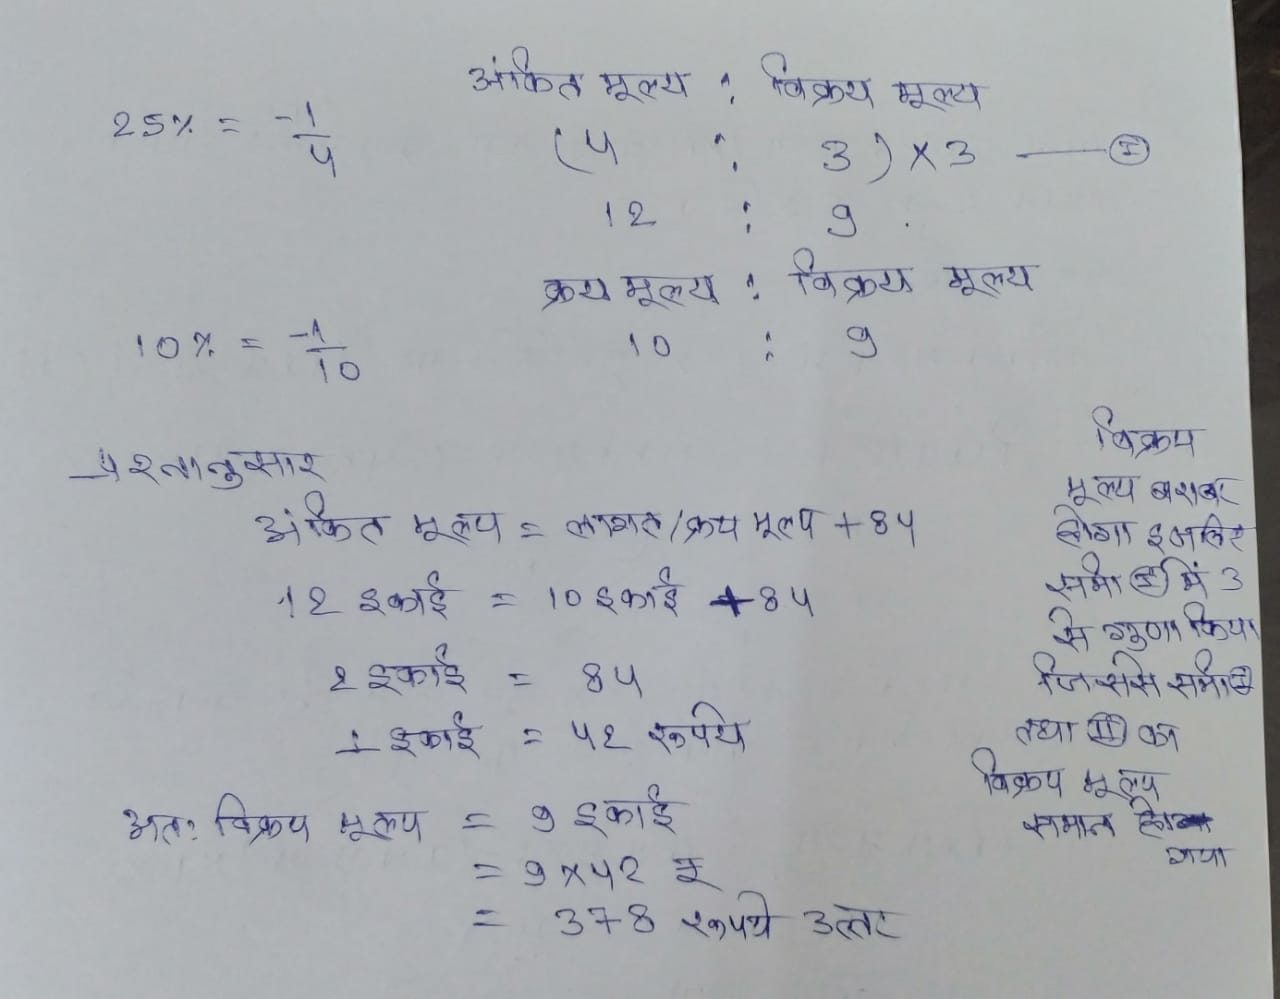 अंकित मूल्य : विक्रय मूल्य
25% = -1/4
(4 : 3) × 3 —— I
12 : 9
क्रय मूल्य : विक्रय मूल्य
10% = -1/10
10 : 9
प्रश्नानुसार
अंकित मूल्य = लागत/क्रय मूल्य + 84
12 इकाई = 10 इकाई + 84
2 इकाई = 84
1 इकाई = 42 रूपये
अतः विक्रय मूल्य = 9 इकाई
= 9 × 42 रू
= 378 रूपये उत्तर
विक्रय
मूल्य बराबर
होगा इसलिए
समी० I में 3
से गुणा किया
जिससे समी०
तथा II का
विक्रय मूल्य
समान हो
गया